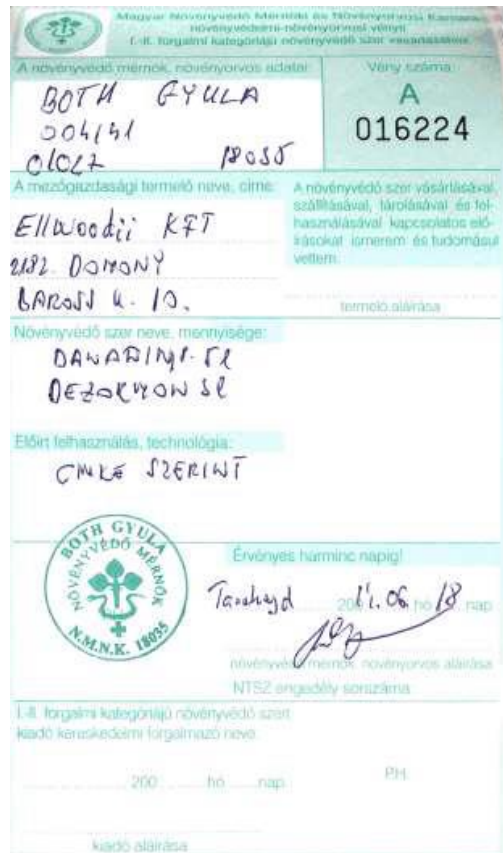 Magyar Növényvédő Mérnöki és Növényorvosi Kamara
növényvédelmi-növényorvosi vényű
I.-II. forgalmi kategóriájú növényvédő szer vásárlásához
A növényvédő mérnök, növényorvos adatai:
Vény száma:
BOTH GYULA
A
016224
18035
A mezőgazdasági termelő neve, címe:
A növényvédő szer vásárlásával,
szállításával, tárolásával és fel-
használásával kapcsolatos elő-
írásokat ismerem és tudomásul
vettem.
Ellwoodii KFT
2182 DOMONY
BAROSS U. 10.
termelő aláírása
Növényvédő szer neve, mennyisége:
5L
5L
Előírt felhasználás, technológia:
CIMKE SZERINT
BOTH GYULA
NÖVÉNYVÉDŐ MÉRNÖK
N.M.N.K. 18035
Érvényes harminc napig!
200 14. 06 hó 18 nap
növényvédő mérnök, növényorvos aláírása
NTSZ engedély sorszáma
I.-II. forgalmi kategóriájú növényvédő szert
kiadó kereskedelmi forgalmazó neve:
200 hó nap
P.H.
kiadó aláírása